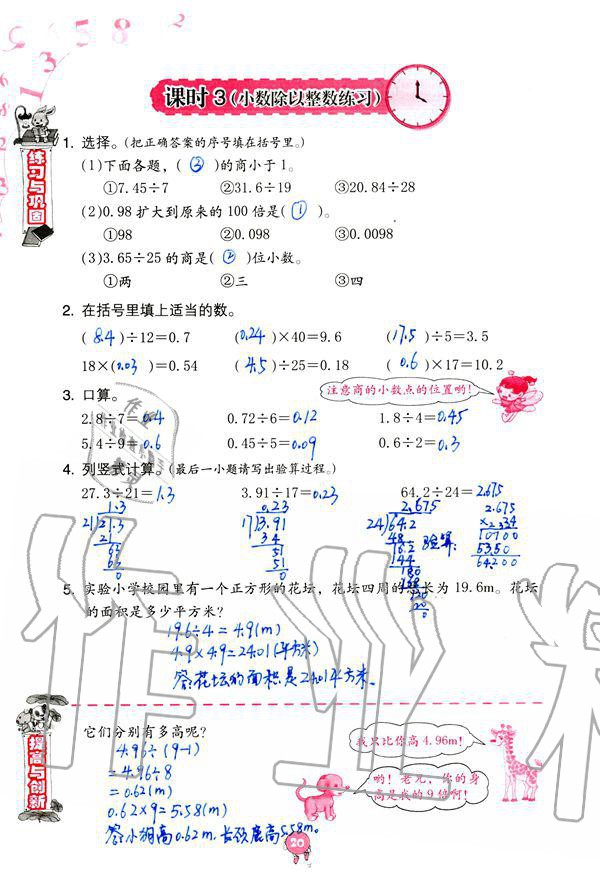 课时 3 (小数除以整数练习)
练习与巩固
1. 选择。(把正确答案的序号填在括号里。)
(1)下面各题，( ③ )的商小于 1。
①7.45÷7 ②31.6÷19 ③20.84÷28
(2)0.98 扩大到原来的 100 倍是( ① )。
①98 ②0.098 ③0.0098
(3)3.65÷25 的商是( ② )位小数。
①两 ②三 ③四
2. 在括号里填上适当的数。
( 8.4 )÷12=0.7 ( 0.24 )×40=9.6 ( 17.5 )÷5=3.5
18×( 0.03 )=0.54 ( 4.5 )÷25=0.18 ( 0.6 )×17=10.2
3. 口算。
注意商的小数点的位置哟!
2.8÷7=0.4 0.72÷6=0.12 1.8÷4=0.45
5.4÷9=0.6 0.45÷5=0.09 0.6÷2=0.3
4. 列竖式计算。(最后一小题请写出验算过程。)
27.3÷21=1.3 3.91÷17=0.23 64.2÷24=2.675
1.3 0.23 2.675 2.675
21 27.3 17 3.91 24 64.2 ×24
21 34 48 验算: 10700
63 51 162 5350
63 51 144 64.200
0 0 180
168
120
0
5. 实验小学校园里有一个正方形的花坛，花坛四周的总长为 19.6m。花坛
的面积是多少平方米?
19.6÷4=4.9(m)
4.9×4.9=24.01(平方米)
答:花坛的面积是24.01平方米。
提高与创新
它们分别有多高呢?
我只比你高 4.96m!
哟! 老兄，你的身
高是我的 9 倍啊!
4.96÷(9-1)
=4.96÷8
=0.62(m)
0.62×9=5.58(m)
答:小狗高0.62m,长颈鹿高5.58m。
20
作业